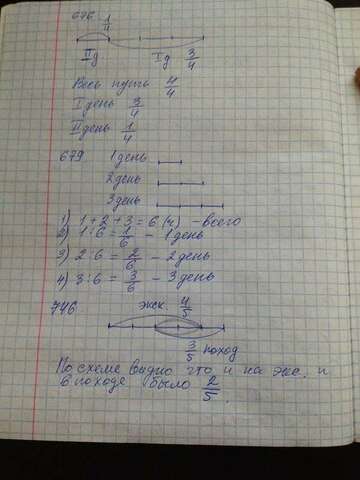 676. 1/4
IIд Iд 3/4
Весь путь 4/4
I день 3/4
II день 1/4
679 1 день
2 день
3 день
1) 1+2+3=6 (ч) - всего
2) 1:6=1/6 - 1 день
3) 2:6=2/6 - 2 день
4) 3:6=3/6 - 3 день
746 экс. 4/5
3/5 поход
По схеме видно что и на экс. и
в походе было 2/5.